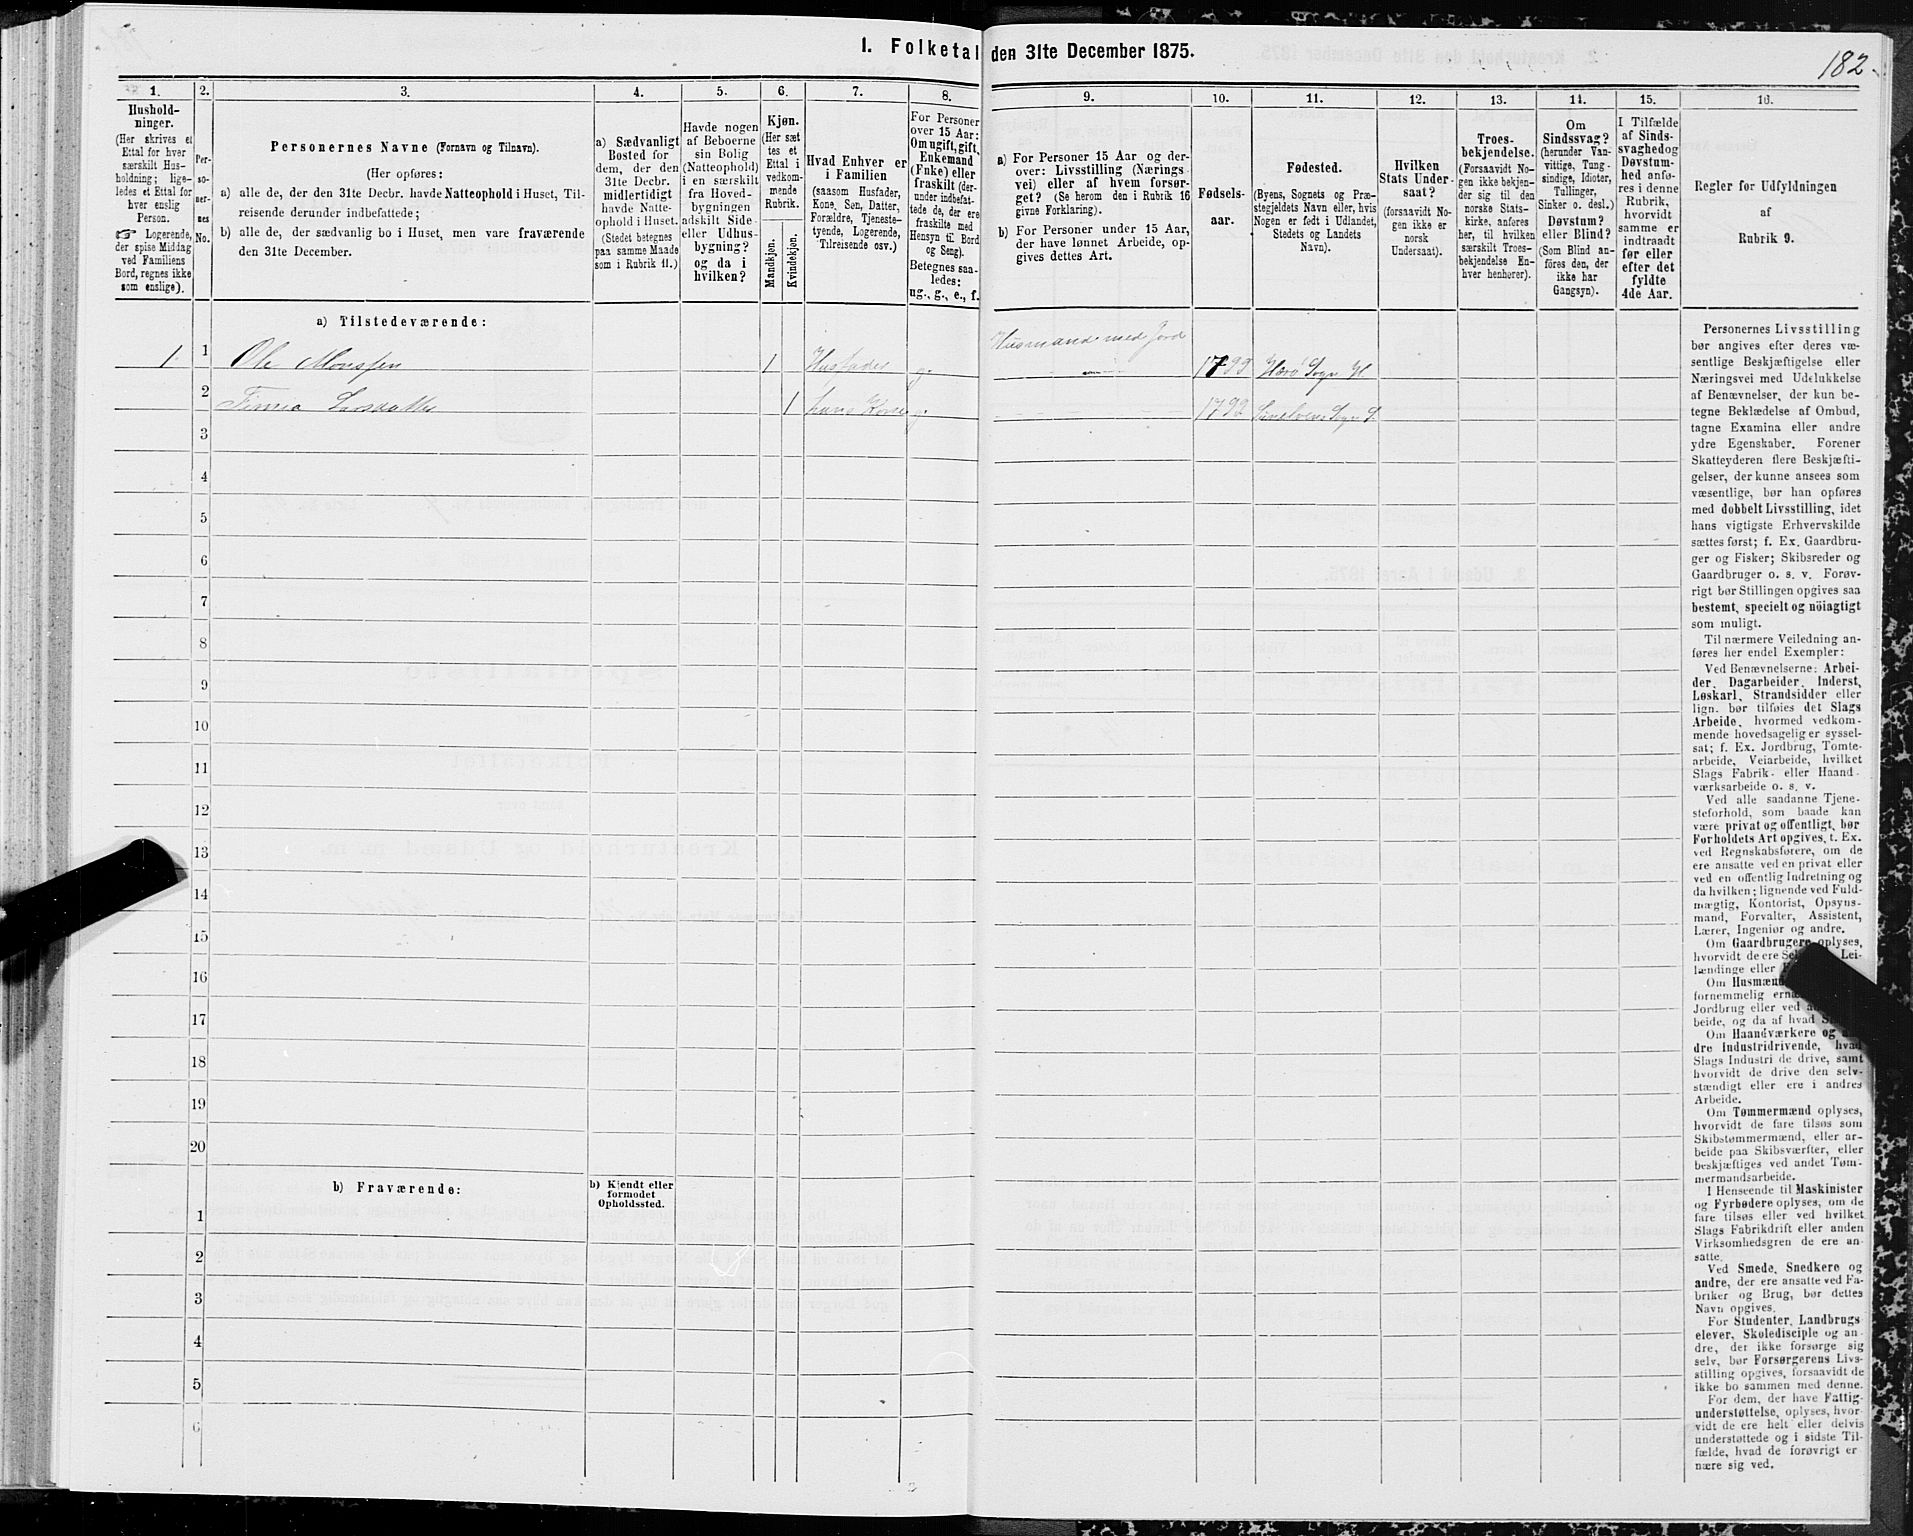 1. Folketal den 31te December 1875.
182.
1.
Hushold-
ninger.
(Her skrives et
Ettal for hver
særskilt Hus-
holdning; lige-
ledes et Ettal for
hver enslig
Person.
☞ Logerende,
der spise Middag
ved Familiens
Bord, regnes ikke
som enslige).
2.
Per-
so-
ner-
nes
No.
3.
Personernes Navne (Fornavn og Tilnavn).
(Her opføres:
a) alle de, der den 31te Decbr. havde Natteophold i Huset, Til-
reisende derunder indbefattede;
b) alle de, der sædvanlig bo i Huset, men vare fraværende
den 31te December.
4.
a) Sædvanligt
Bosted for
dem, der den
31te Decbr.
midlertidigt
havde Natte-
ophold i Huset.
(Stedet betegnes
paa samme Maade
som i Rubrik 11.)
5.
Havde nogen
af Beboerne
sin Bolig
(Natteophold)
i en særskilt
fra Hoved-
bygningen
adskilt Side-
eller Udhus-
bygning?
og da i
hvilken?
6.
Kjøn.
(Her sæt
tes et
Ettal i
vedkom-
mende
Rubrik.
Mandkjøn.
Kvindekjøn.
7.
Hvad Enhver er
i Familien
(saasom Husfader,
Kone, Søn, Datter,
Forældre, Tjeneste-
tyende, Logerende,
Tilreisende osv.)
8.
For Personer
over 15 Aar:
Om ugift, gift,
Enkemand
(Enke) eller
fraskilt (der-
under indbefat-
tede de, der ere
fraskilte med
Hensyn til Bord
og Seng).
Betegnes saa-
ledes:
ug., g., e., f.
9.
a) For Personer 15 Aar og der-
over: Livsstilling (Nærings
vei) eller af hvem forsør-
get? (Se herom den i Rubrik 16
givne Forklaring).
b) For Personer under 15 Aar,
der have lønnet Arbeide, op-
gives dettes Art.
10.
Fødsels-
aar.
11.
Fødested.
(Byens, Sognets og Præ-
stegjeldets Navn eller, hvis
Nogen er født i Udlandet,
Stedets og Landets
Navn).
12.
Hvilken
Stats Under-
saat?
(forsaavidt No-
gen ikke er
norsk
Undersaat).
13.
Troes-
bekjendelse.
(Forsaavidt No-
gen ikke bekjen-
der sig til den
norske Stats-
kirke, anføres
her, til hvilken
særskilt Troes-
bekjendelse En-
hver henhører).
14.
Om
Sindssvag?
(herunder Van-
vittige, Tung-
sindige, Idioter,
Tullinger,
Sinker o. desl.)
Døvstum?
eller Blind?
(Som Blind an-
føres den, der
ikke har
Gangsyn).
15.
I Tilfælde
af Sinds-
svaghedog
Døvstum-
hed anfø-
res i denne
Rubrik,
hvorvidt
samme er
indtraadt
før eller
efter det
fyldte
4de Aar.
16.
Regler før Udfyldningen
af
Rubrik 9.
a) Tilstedeværende:
1 1 Ole Monssen 1 Husfader g. Husmand med Jord 1799 Herø Sogn H
2 Larsdatter 1 hans Kone g. 1799 Sogn S.
3
4
5
6
7
8
9
10
11
12
13
14
15
16
17
18
19
20
b) Fraværende:
b) Kjendt eller
formodet
Opholdssted.
1
2
3
4
5
6
Personernes Livsstilling
bør angives efter deres væ-
sentlige Beskjæftigelse eller
Næringsvei med Udelukkelse
af Benævnelser, der kun be-
tegne Beklædelse af Ombud,
tagne Examina eller andre
ydre Egenskaber. Forener
Skatteyderen flere Beskjæfti-
gelser, der kunne ansees som
væsentlige, bør han opføres
med dobbelt Livsstilling, idet
hans vigtigste Erhvervskilde
sættes først; f. Ex. Gaardbru-
ger og Fisker; Skibsreder og
Gaardbruger o. s. v. Forøv-
rigt bør Stillingen opgives saa
bestemt, specielt og nöiagtigt
som muligt.
Til nærmere Veiledning an-
føres her endel Exempler:
Ved Benævnelserne: Arbei-
der, Dagarbeider, Inderst,
Løskarl, Strandsidder eller
lign. bør tilføies det Slags
Arbeide, hvormed vedkom-
mende hovedsagelig er syssel-
sat; f. Ex. Jordbrug, Tomte-
arbeide, Veiarbeide, hvilket
Slags Fabrik- eller Haand-
værksarbeide o. s. v.
Ved alle saadanne Tjene-
steforhold, som baade kan
være privat og offentligt, bør
Forholdets Art opgives, t. Ex.
ved Regnskabsførere, om de
ere ansatte ved en privat eller
ved en offentlig Indretning og
da hvilken; lignende ved Fuld-
mægtig, Kontorist, Opsyns-
mand, Forvalter, Assistent,
Lærer, Ingeniør og andre.
Om Gaardbrugere oplyses,
hvorvidt de ere Lei-
lændinge eller
Om
fornemmelig
Jordbrug eller ved
beide, og da af hvad
Om Haandværkere og
dre Industridrivende, hvad
Slags Industri de drive, samt
hvorvidt de drive den selv-
stændigt eller ere i andres
Arbeide.
Om Tømmermænd oplyses,
hvorvidt de fare tilsøs som
Skibstømmermænd, eller ar-
beide paa Skibsværfter, eller
beskjæftiges ved andet Tøm-
mermandsarbeide.
I Henseende til Maskinister
og Fyrbødere oplyses, om de
fare tilsøs eller ved hvilket
Slags Fabrikdrift eller anden
Virksomhedsgren de ere an-
satte.
Ved Smede, Snedkere og
andre, der ere ansatte ved Fa-
briker og Brug, bør dettes
Navn opgives.
For Studenter, Landbrugs
elever, Skoledisciple og an-
dre, der ikke forsørge sig
selv, bør Forsørgerens Livs-
stilling opgives, forsaavidt de
ikke bo sammen med denne.
For dem, der have Fattig-
understøttelse, oplyses, hvor-
vidt de ere helt eller delvis
understøttede og i sidste Til-
fælde, hvad de forøvrigt er-
nære sig ved.